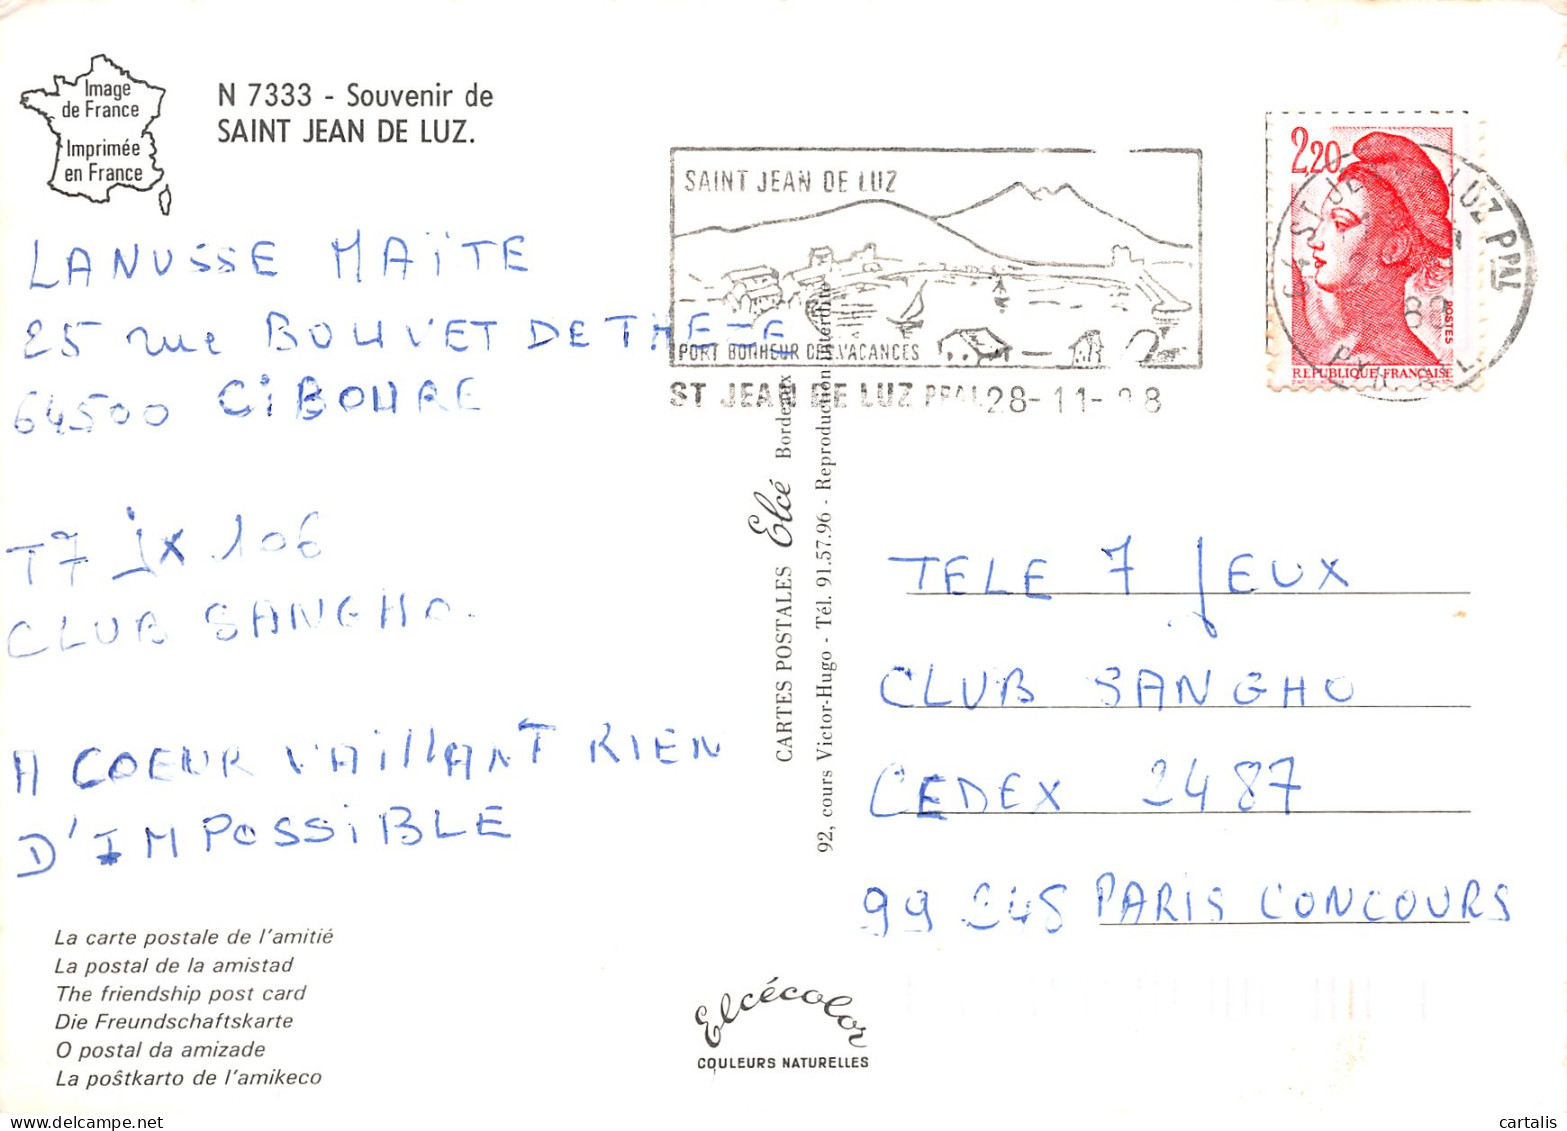 Image
de France
Imprimée
en France
N 7333 - Souvenir de
SAINT JEAN DE LUZ.
LANUSSE MAÏTE
25 rue BOUVET DE THEZE
64500 CIBOURE
T7 Jx 106
CLUB SANGHO.
A COEUR VAILLANT RIEN
D'IMPOSSIBLE
La carte postale de l'amitié
La postal de la amistad
The friendship post card
Die Freundschaftskarte
O postal da amizade
La poŝtkarto de l'amikeco
CARTES POSTALES Elcé Bordeaux
92, cours Victor-Hugo - Tél. 91.57.96 - Reproduction interdite
Elcécolor
COULEURS NATURELLES
SAINT JEAN DE LUZ
PORT BONHEUR DES VACANCES
ST JEAN DE LUZ PPAL 28-11-88
2,20
POSTES
REPUBLIQUE FRANÇAISE
64 ST JEAN DE LUZ PPAL
TELE 7 JEUX
CLUB SANGHO
CEDEX 2487
99 248 PARIS CONCOURS
cartalis